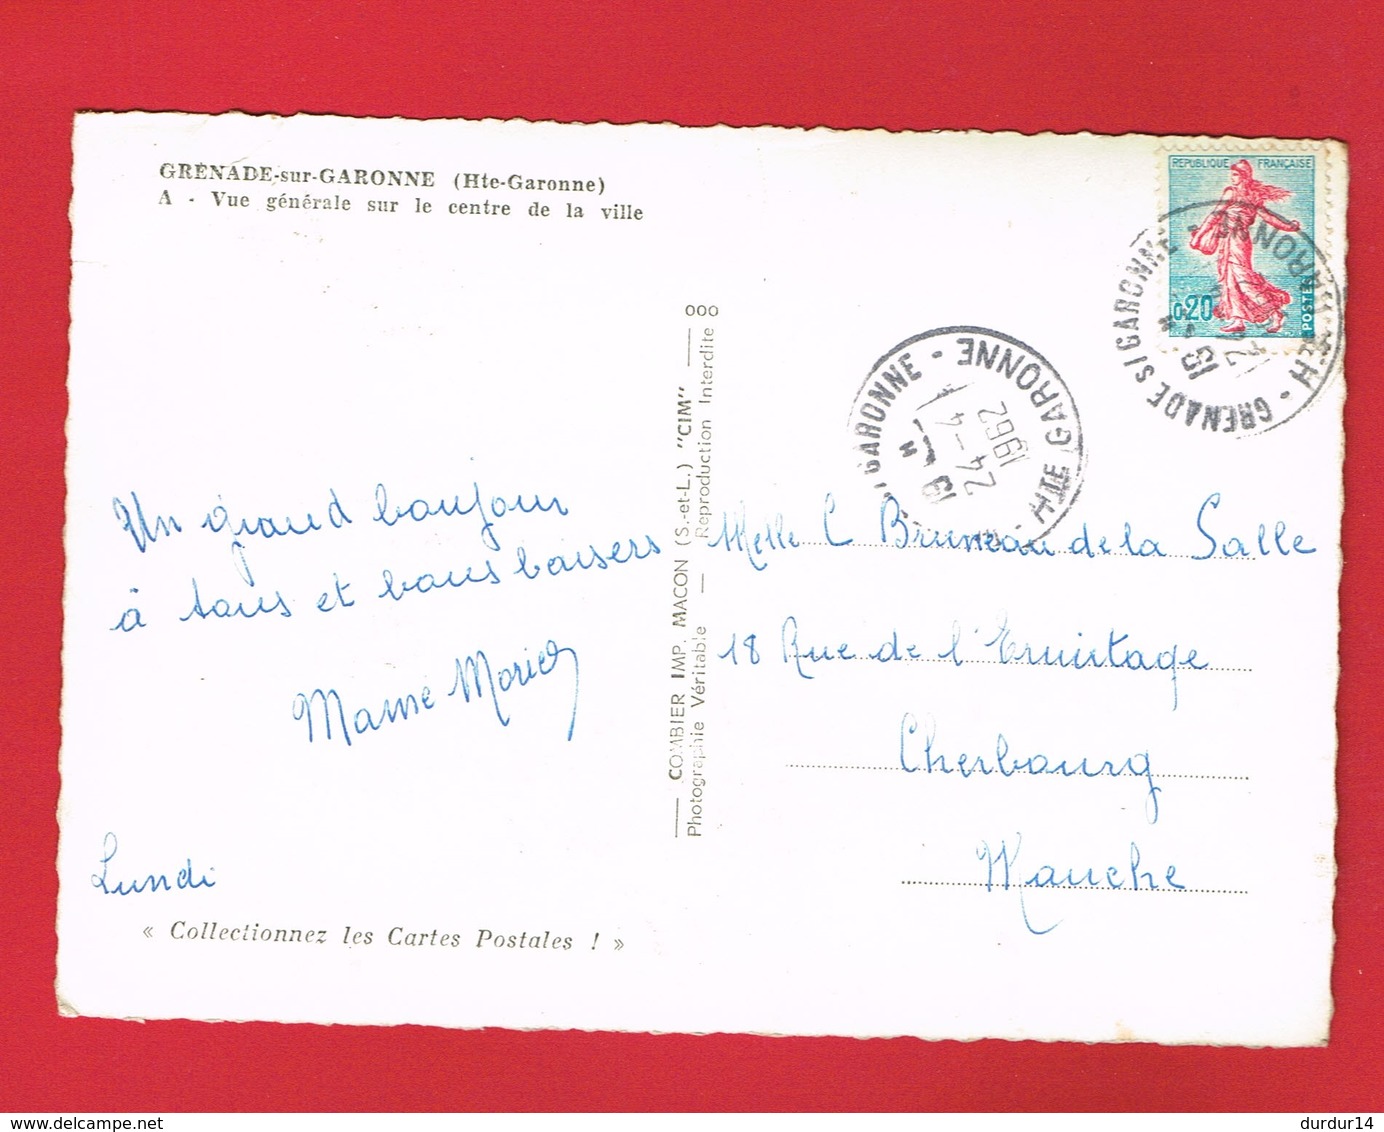 GRENADE-sur-GARONNE (Hte-Garonne)
A - Vue générale sur le centre de la ville
REPUBLIQUE FRANÇAISE
0,20
POSTES
GRENADE S/GARONNE - HTE GARONNE
15 H
S/GARONNE - HTE GARONNE
19 H
24-4
1962
000
COMBIER IMP. MACON (S.-et-L.) "CIM"
Photographie Véritable — Reproduction Interdite
Un grand bonjour
à tous et bons baisers
Lundi
« Collectionnez les Cartes Postales ! »
Melle C Bruneau de la Salle
18 Rue de l'Ermitage
Cherbourg
Manche
delcampe.net
durdur14